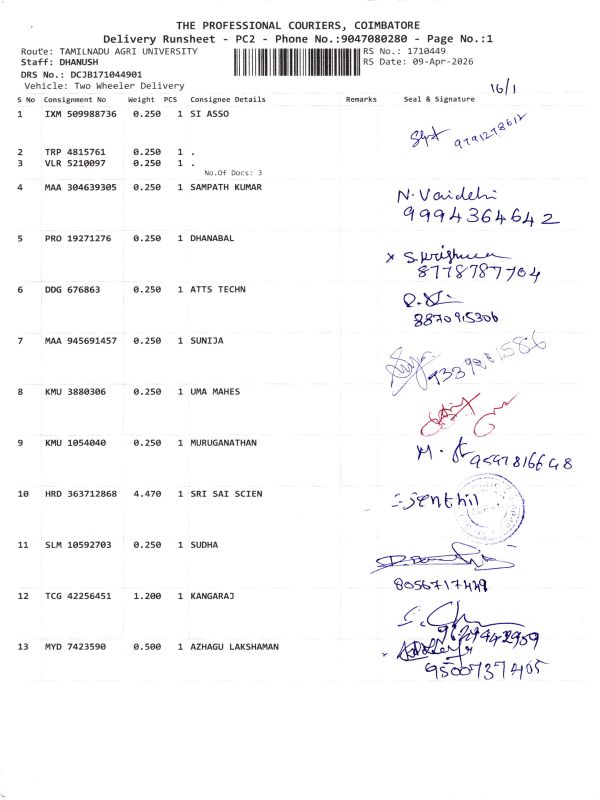 THE PROFESSIONAL COURIERS, COIMBATORE
Delivery Runsheet - PC2 - Phone No.:9047080280 - Page No.:1
Route: TAMILNADU AGRI UNIVERSITY RS No.: 1710449
Staff: DHANUSH RS Date: 09-Apr-2026
DRS No.: DCJB171044901
Vehicle: Two Wheeler Delivery 16/1
S No Consignment No Weight PCS Consignee Details Remarks Seal & Signature
1 IXM 509988736 0.250 1 SI ASSO
9791278612
2 TRP 4815761 0.250 1 .
3 VLR 5210097 0.250 1 .
No.Of Docs: 3
4 MAA 304639305 0.250 1 SAMPATH KUMAR N. Vaidehi
9994364642
5 PRO 19271276 0.250 1 DHANABAL
x S. Krishnan
8778787704
6 DDG 676863 0.250 1 ATTS TECHN
8870915306
7 MAA 945691457 0.250 1 SUNIJA
8 KMU 3880306 0.250 1 UMA MAHES
9 KMU 1054040 0.250 1 MURUGANATHAN M.
10 HRD 363712868 4.470 1 SRI SAI SCIEN Senthil
11 SLM 10592703 0.250 1 SUDHA
8056717429
12 TCG 42256451 1.200 1 KANGARAJ
13 MYD 7423590 0.500 1 AZHAGU LAKSHAMAN
9500737405